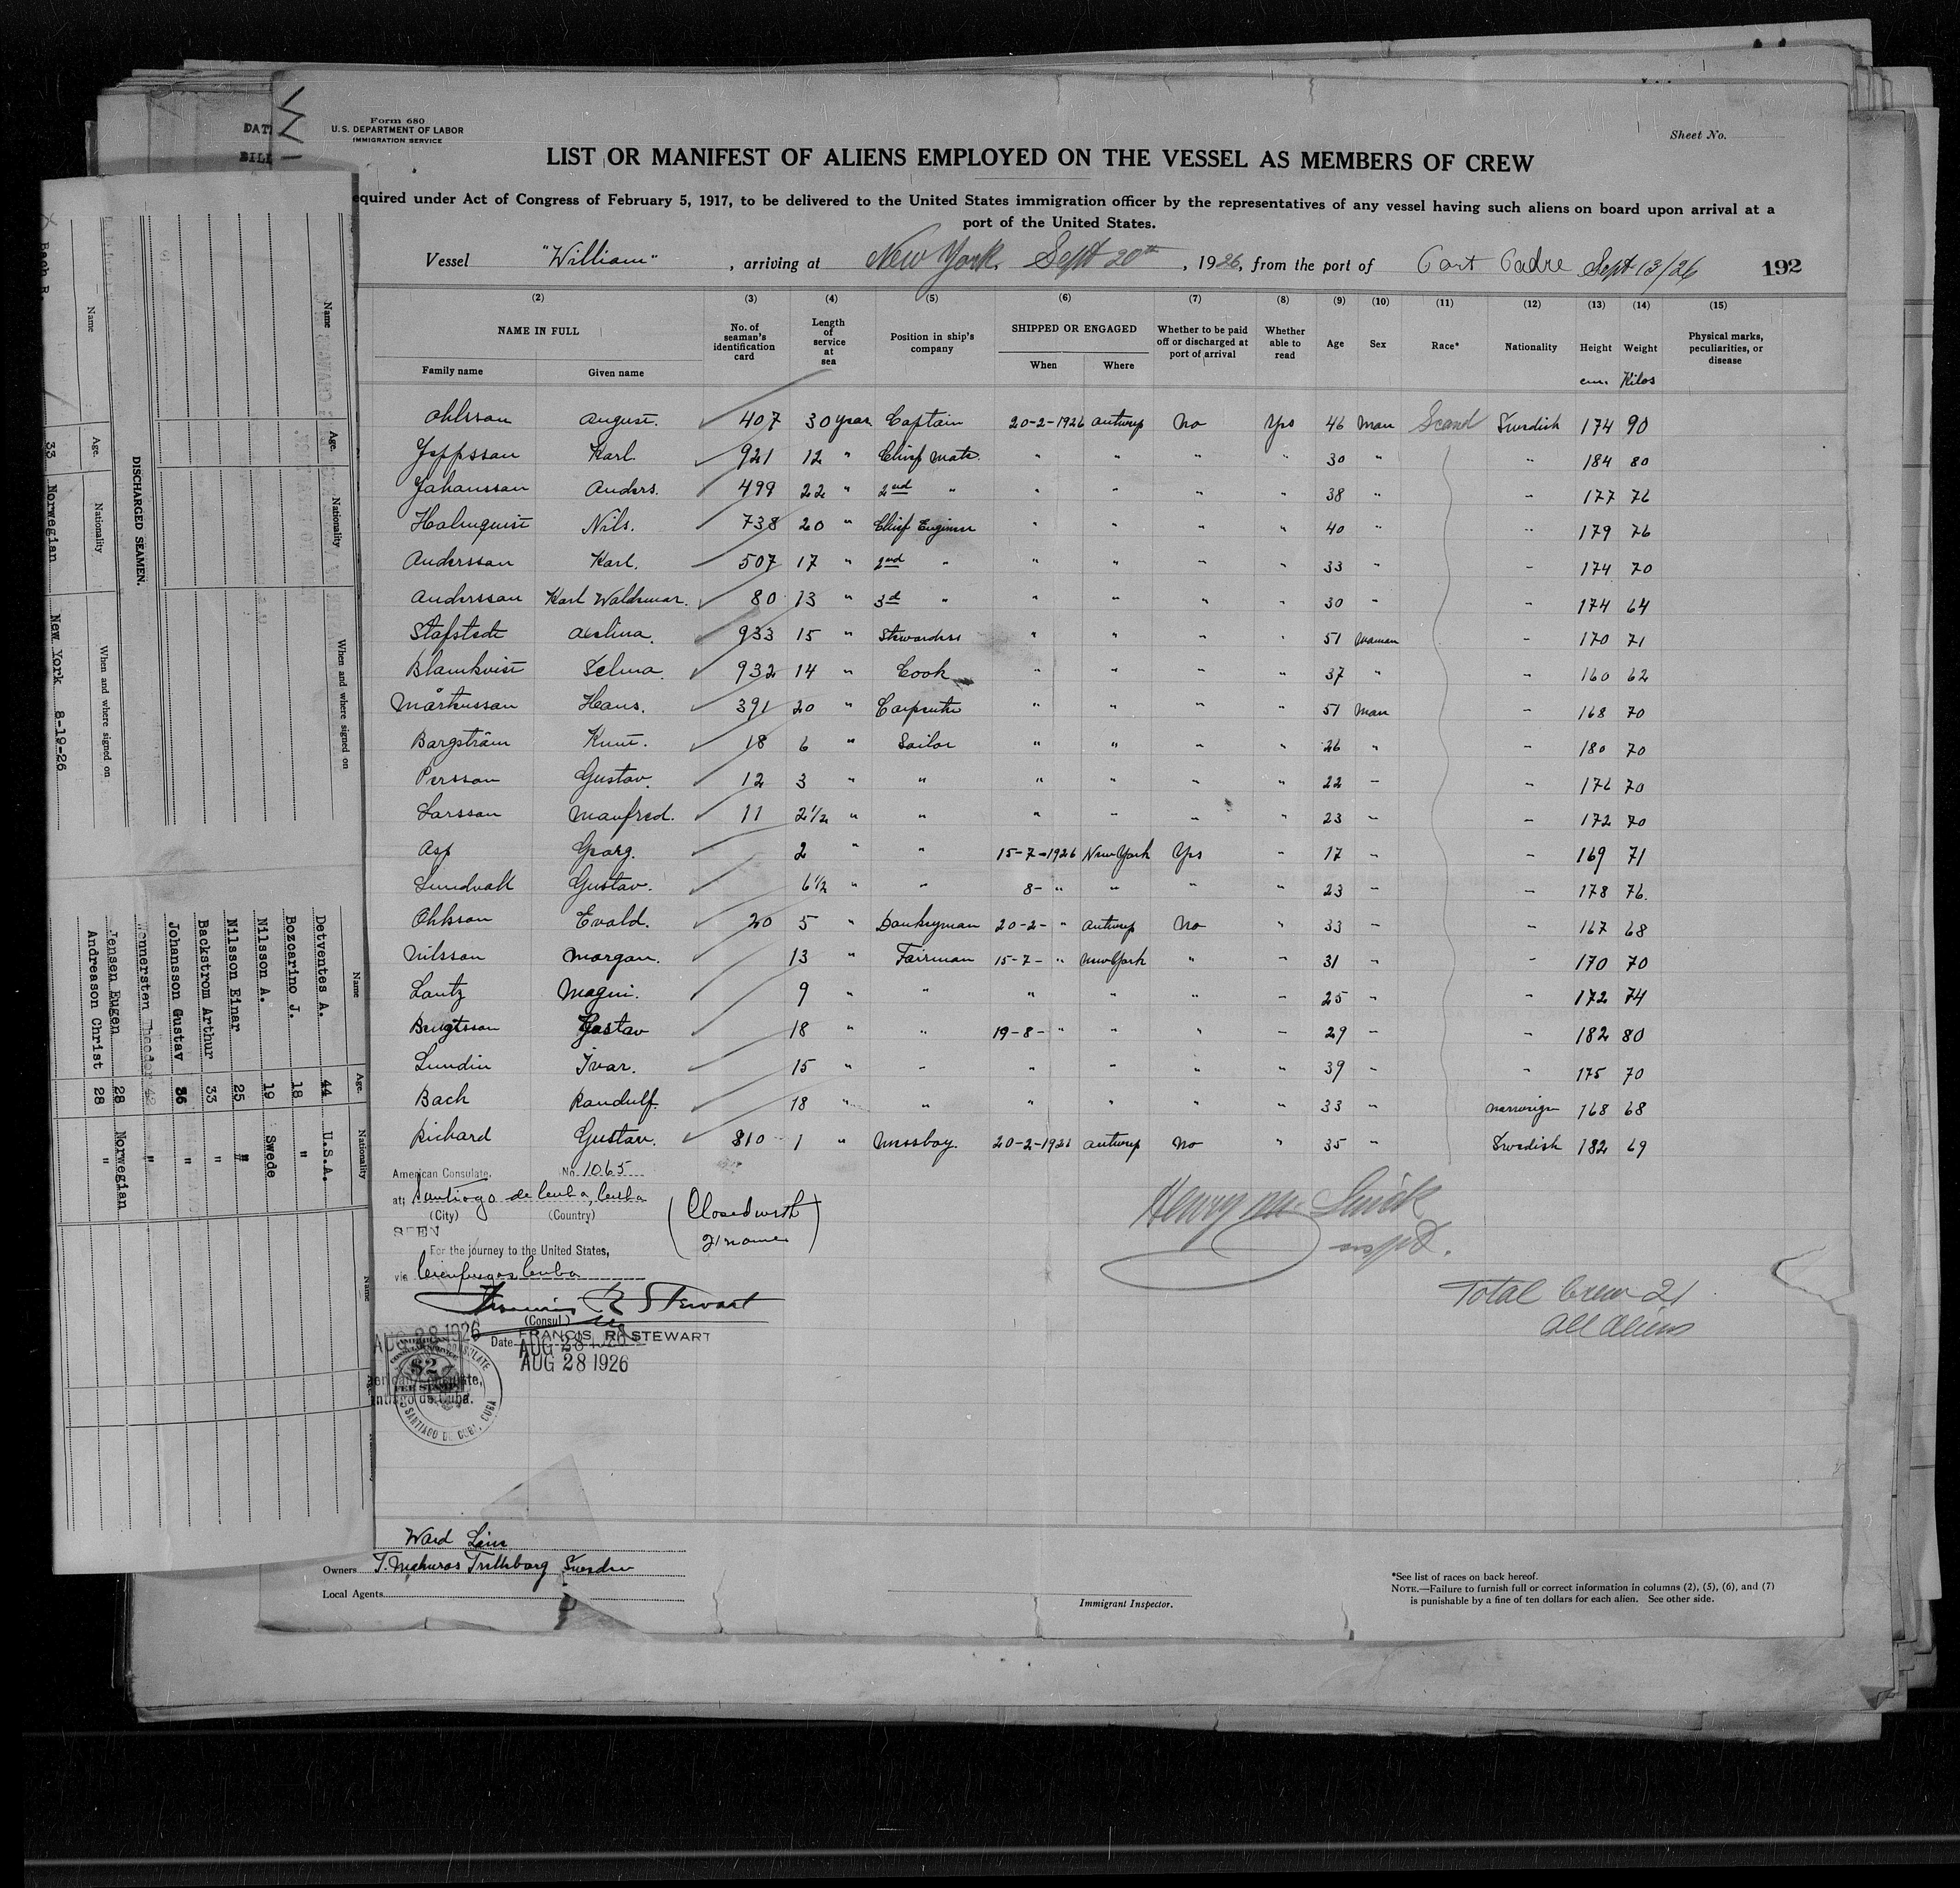 DAT
BILL
Form 680
U. S. DEPARTMENT OF LABOR
IMMIGRATION SERVICE
Sheet No.
LIST OR MANIFEST OF ALIENS EMPLOYED ON THE VESSEL AS MEMBERS OF CREW
equired under Act of Congress of February 5, 1917, to be delivered to the United States immigration officer by the representatives of any vessel having such aliens on board upon arrival at a
port of the United States.
Vessel "William", arriving at New York, Sept 20th, 1926, from the port of Port Padre Sept 13/26 192
(2) (3) (4) (5) (6) (7) (8) (9) (10) (11) (12) (13) (14) (15)
NAME IN FULL
Family name Given name
No. of seaman's identification card
Length of service at sea
Position in ship's company
SHIPPED OR ENGAGED
When Where
Whether to be paid off or discharged at port of arrival
Whether able to read
Age
Sex
Race*
Nationality
Height
cm.
Weight
Kilos
Physical marks, peculiarities, or disease
Ohlsson August. 407 30 year Captain 20-2-1926 Antwerp No Yes 46 Man Scand Swedish 174 90
Jeppsson Karl. 921 12 " Chief Mate. " " " " 30 " " 184 80
Johansson Anders. 499 22 " 2nd " " " " " 38 " " 177 76
Holmquist Nils. 738 20 " Chief Engineer " " " " 40 " " 179 76
Andersson Karl. 507 17 " 2nd " " " " " 33 " " 174 70
Andersson Karl Waldemar. 80 13 " 3d " " " " " 30 " " 174 64
Stafstedt 933 15 " Stewardess " " " " 51 Woman " 170 71
Blomkvist Selma. 932 14 " Cook " " " " 37 " " 160 62
Mårtensson Hans. 391 20 " Carpenter " " " " 51 Man " 168 70
Bergström Knut. 18 6 " Sailor " " " " 26 " " 180 70
Persson Gustav. 12 3 " " " " " " 22 " " 176 70
Larsson Manfred. 11 2 1/2 " " " " " " 23 " " 172 70
Asp Georg. 2 " " 15-7-1926 New York Yes " 17 " " 169 71
Lundvall Gustav. 6 1/2 " " 8- " " " " 23 " " 178 76.
Ohlsson Evald. 20 5 " Donkeyman 20-2- " Antwerp No " 33 " " 167 68
Nilsson Morgan. 13 " Fireman 15-7- " New York " " 31 " " 170 70
Lantz Magni. 9 " " " " " " 25 " " 172 74
Bengtsson Gustav 18 " " 19-8- " " " " 29 " " 182 80
Lundin Ivar. 15 " " " " " " 39 " " 175 70
Bach Randulf. 18 " " " " " " 33 " Norweign 168 68
Richard Gustav. 810 1 " Messboy. 20-2-1926 Antwerp No " 35 " Swedish 182 69
American Consulate, No. 1065
at Santiago de Cuba, Cuba
(City) (Country)
SEEN
For the journey to the United States,
via Cienfuegos Cuba
Francis R Stewart
(Consul)
FRANCIS R. STEWART
Date AUG 28 1926
AUG 28 1926
AUG 28 1926
$2
SANTIAGO DE CUBA, CUBA
(Closed with
21 names)
Henry
Total Crew 21
All Aliens
Ward Line
Owners Sweden
Local Agents
Immigrant Inspector.
*See list of races on back hereof.
NOTE.—Failure to furnish full or correct information in columns (2), (5), (6), and (7)
is punishable by a fine of ten dollars for each alien. See other side.
Name Age. Nationality When and where signed on
DISCHARGED SEAMEN.
Name Age. Nationality When and where signed on
Bach R. 33 Norwegian New York 8-19-26
Name Age. Nationality
Detventes A. 44 U.S.A.
Bozcarino J. 18 "
Nilsson A. 19 Swede
Nilsson Einar 25 "
Backstrom Arthur 33 "
Johansson Gustav 36 "
Wennersten Theodor 42 "
Jensen Eugen 28 Norwegian
Andreason Christ 28 "
Name